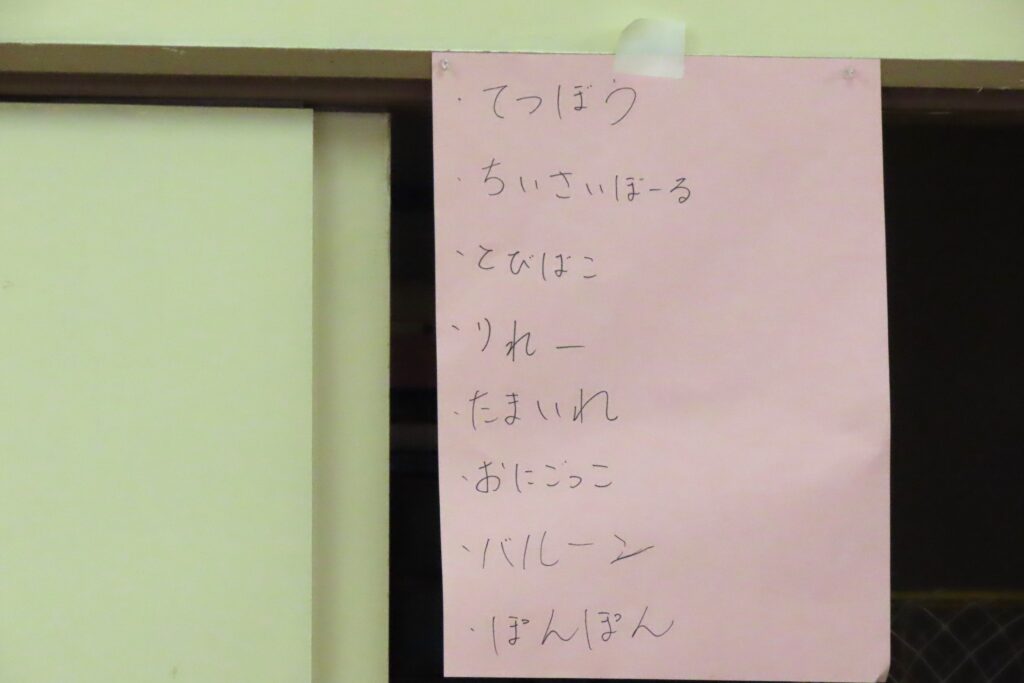 ・てつぼう
・ちいさいぼーる
・とびばこ
・りれー
・たまいれ
・おにごっこ
・バルーン
・ぽんぽん